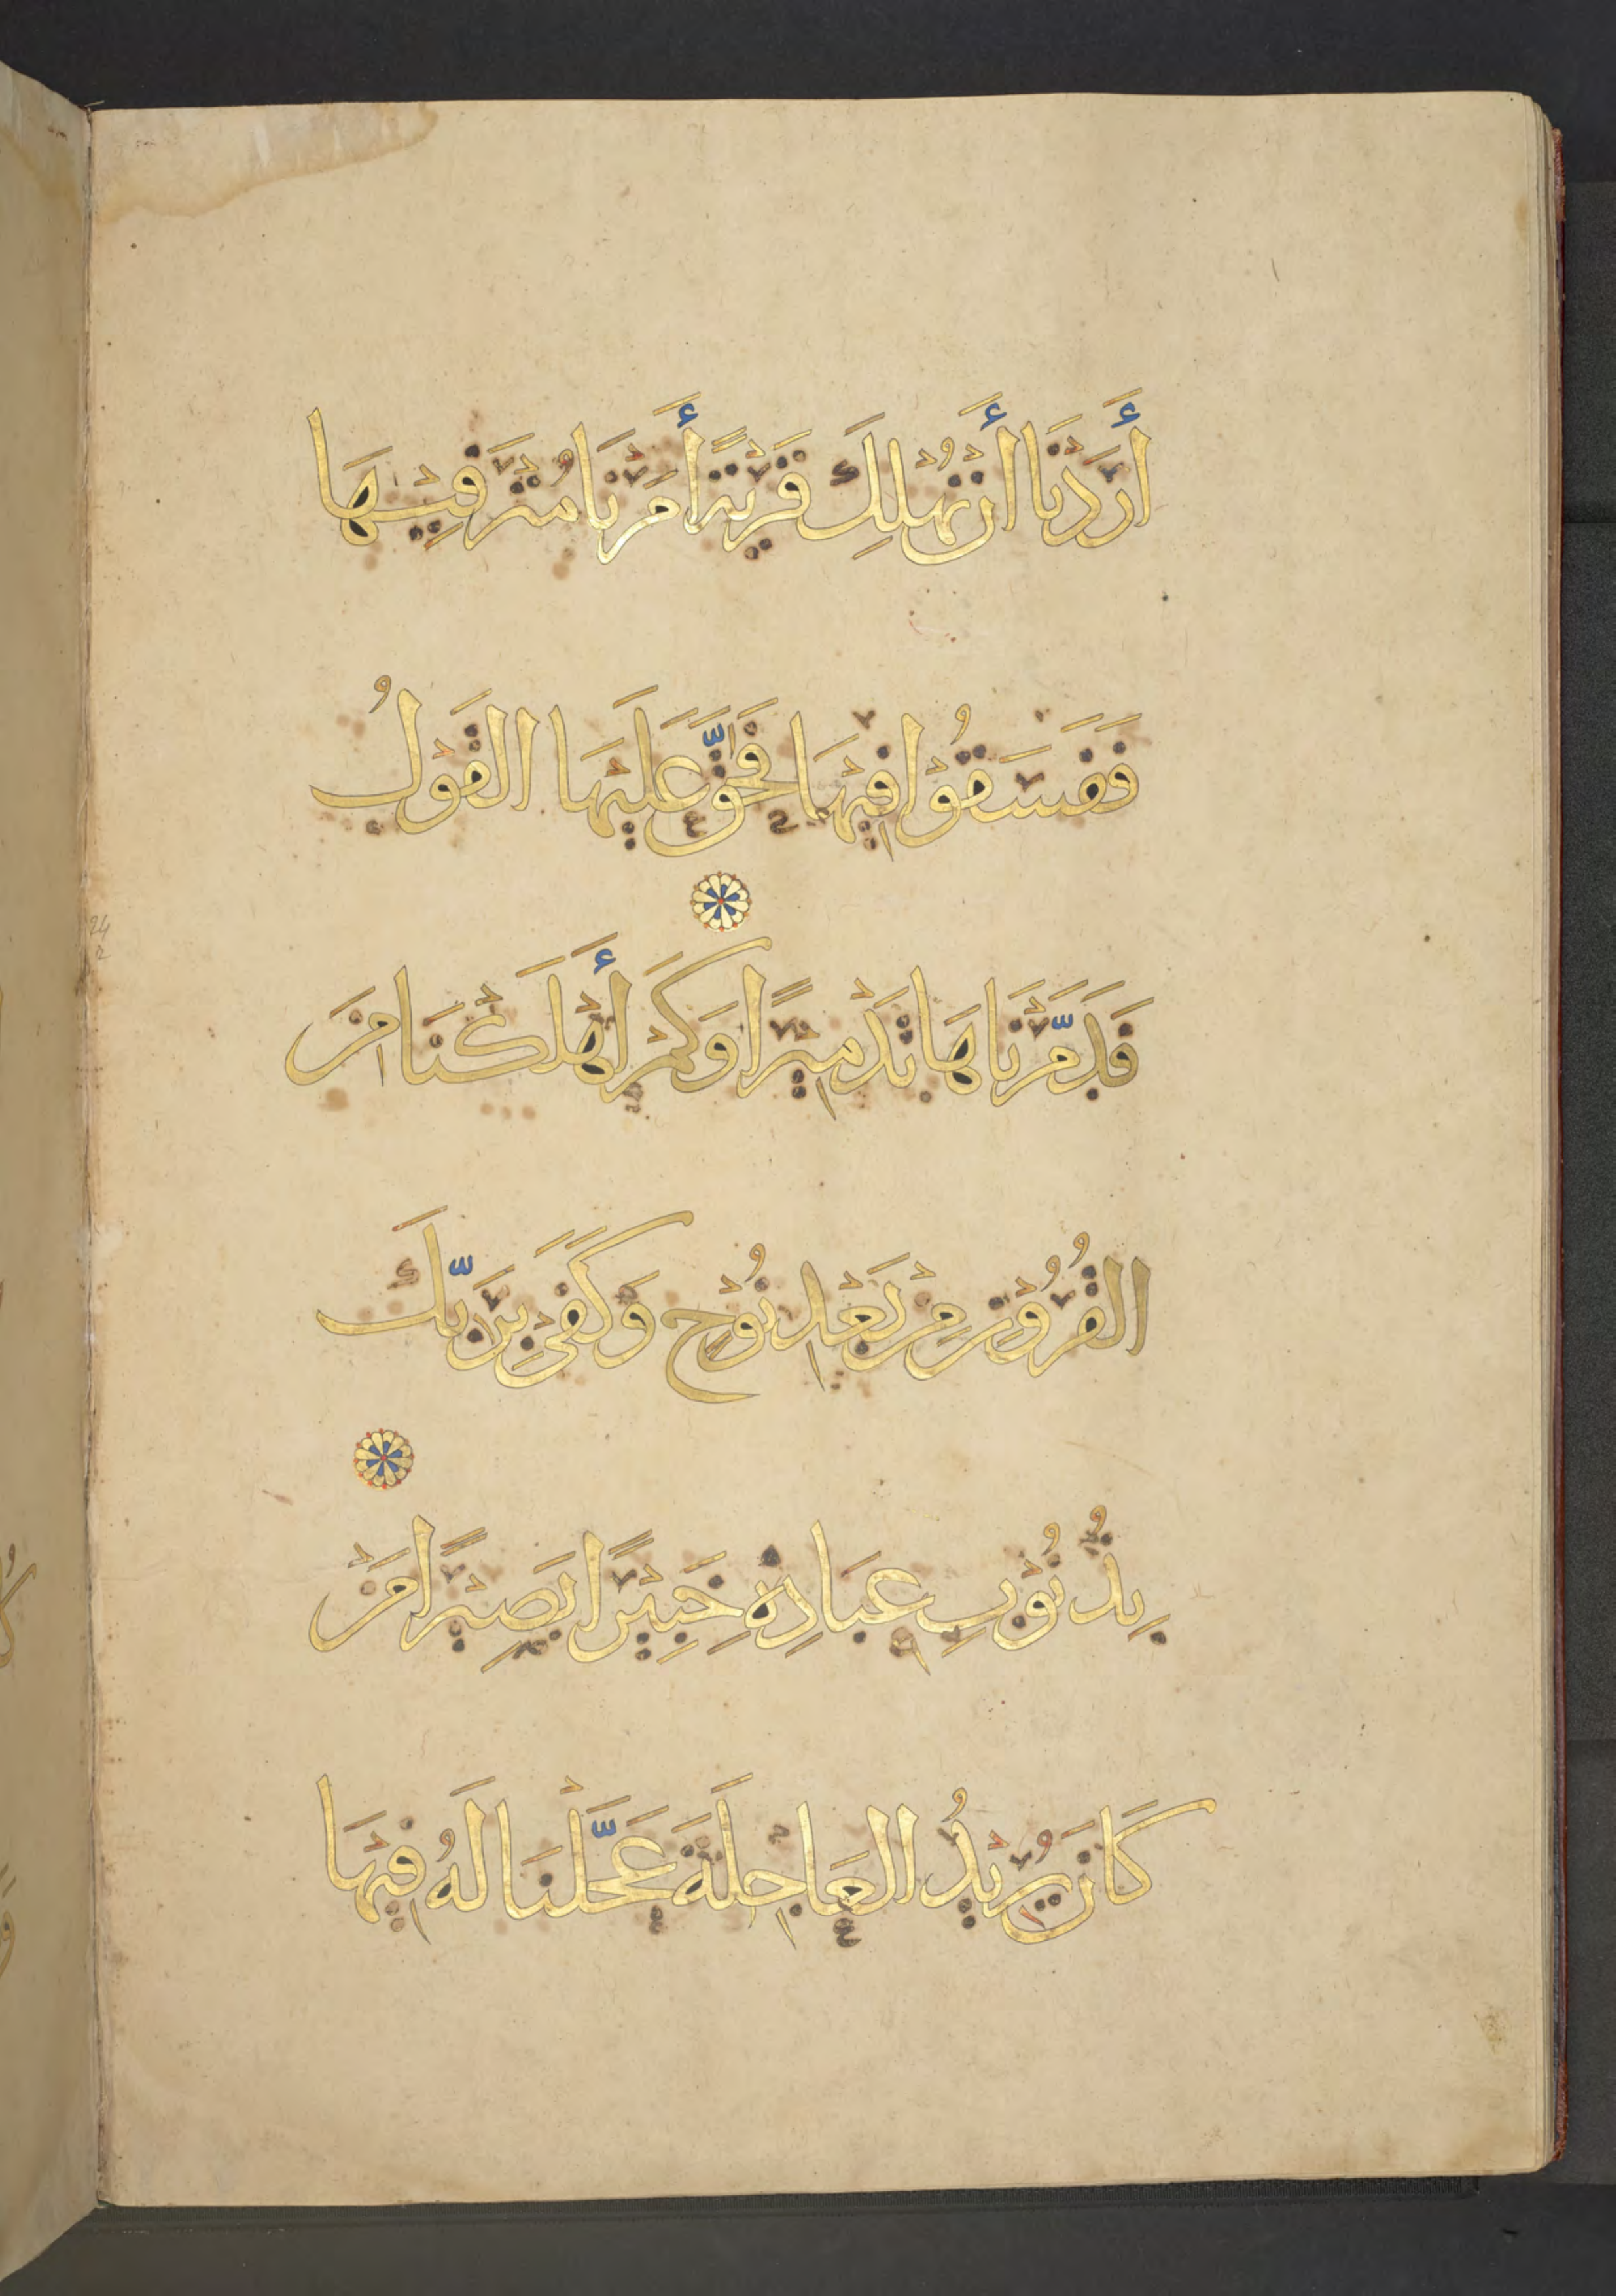 أَرَدْنَا أَنْ نُهْلِكَ قَرْيَةً أَمَرْنَا مُتْرَفِيْهَا
فَفَسَقُوْا فِيْهَا فَحَقَّ عَلَيْهَا القَوْلُ
فَدَمَّرْنَاهَا تَدْمِيْرًا وَكَمْ أَهْلَكْنَا مِنَ
القُرُوْنِ مِنْ بَعْدِ نُوْحٍ وَكَفَى بِرَبِّكَ
بِذُنُوْبِ عِبَادِهِ خَبِيْرًا بَصِيْرًا مَنْ
كَانَ يُرِيْدُ العَاجِلَةَ عَجَّلْنَا لَهُ فِيْهَا